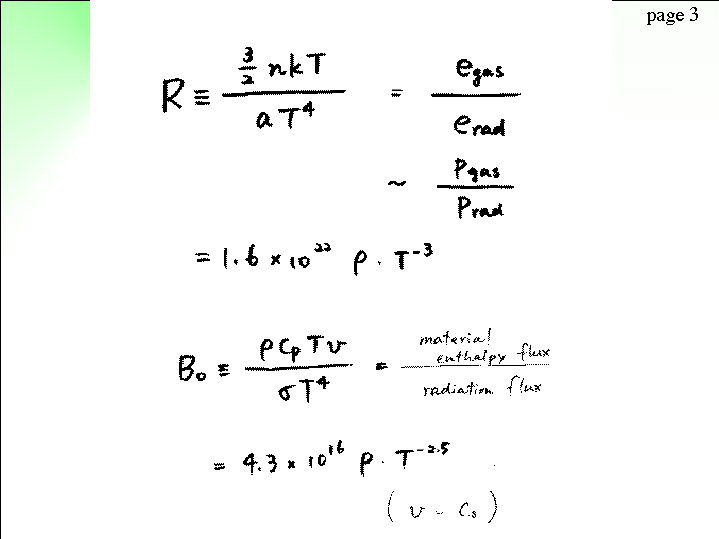 page 3
R ≡ (3/2 nkT) / (aT⁴) = e_gas / e_rad
~ P_gas / P_rad
= 1.6 × 10²² ρ · T⁻³
B₀ ≡ (ρ C_p T v) / (σT⁴) = material enthalpy flux / radiation flux
= 4.3 × 10¹⁶ ρ · T⁻²·⁵
( v ~ C_s )